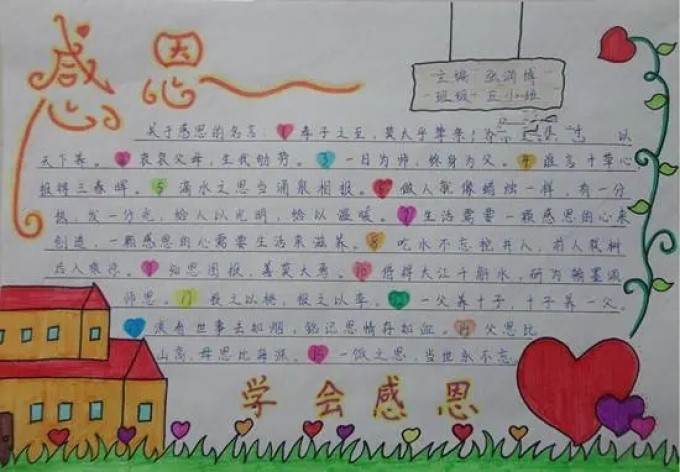 感恩
主编 张润博
班级 五小班
关于感恩的名言：1 孝子之至，莫大乎尊亲； 以
天下养。2 哀哀父母，生我劬劳。3 一日为师，终身为父。4 谁言寸草心，
报得三春晖。5 滴水之恩当涌泉相报。6 做人就像蜡烛一样，有一分
热，发一分光，给人以光明，给以温暖。7 生活需要一颗感恩的心来
创造，一颗感恩的心需要生活来滋养。8 吃水不忘挖井人，前人栽树
后人乘凉。9 知恩图报，善莫大焉。10 得大江千斛水，研为翰墨颂
师恩。11 投之以桃，报之以李。12 一父养十子，十子养一父。
13 滚看世事去如烟，铭记恩情存如血。14 父恩比
山高，母恩比海深。15 一饭之恩，当世永不忘
学会感恩